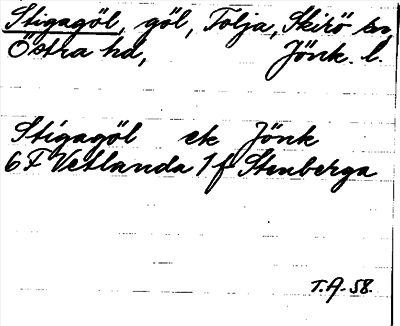 Stigagöl, göl, Tolja, Skirö sn,
Östra hd, Jönk. l.
Stigagöl ek Jönk
6F Vetlanda 1f Stenberga
T.A. 58.